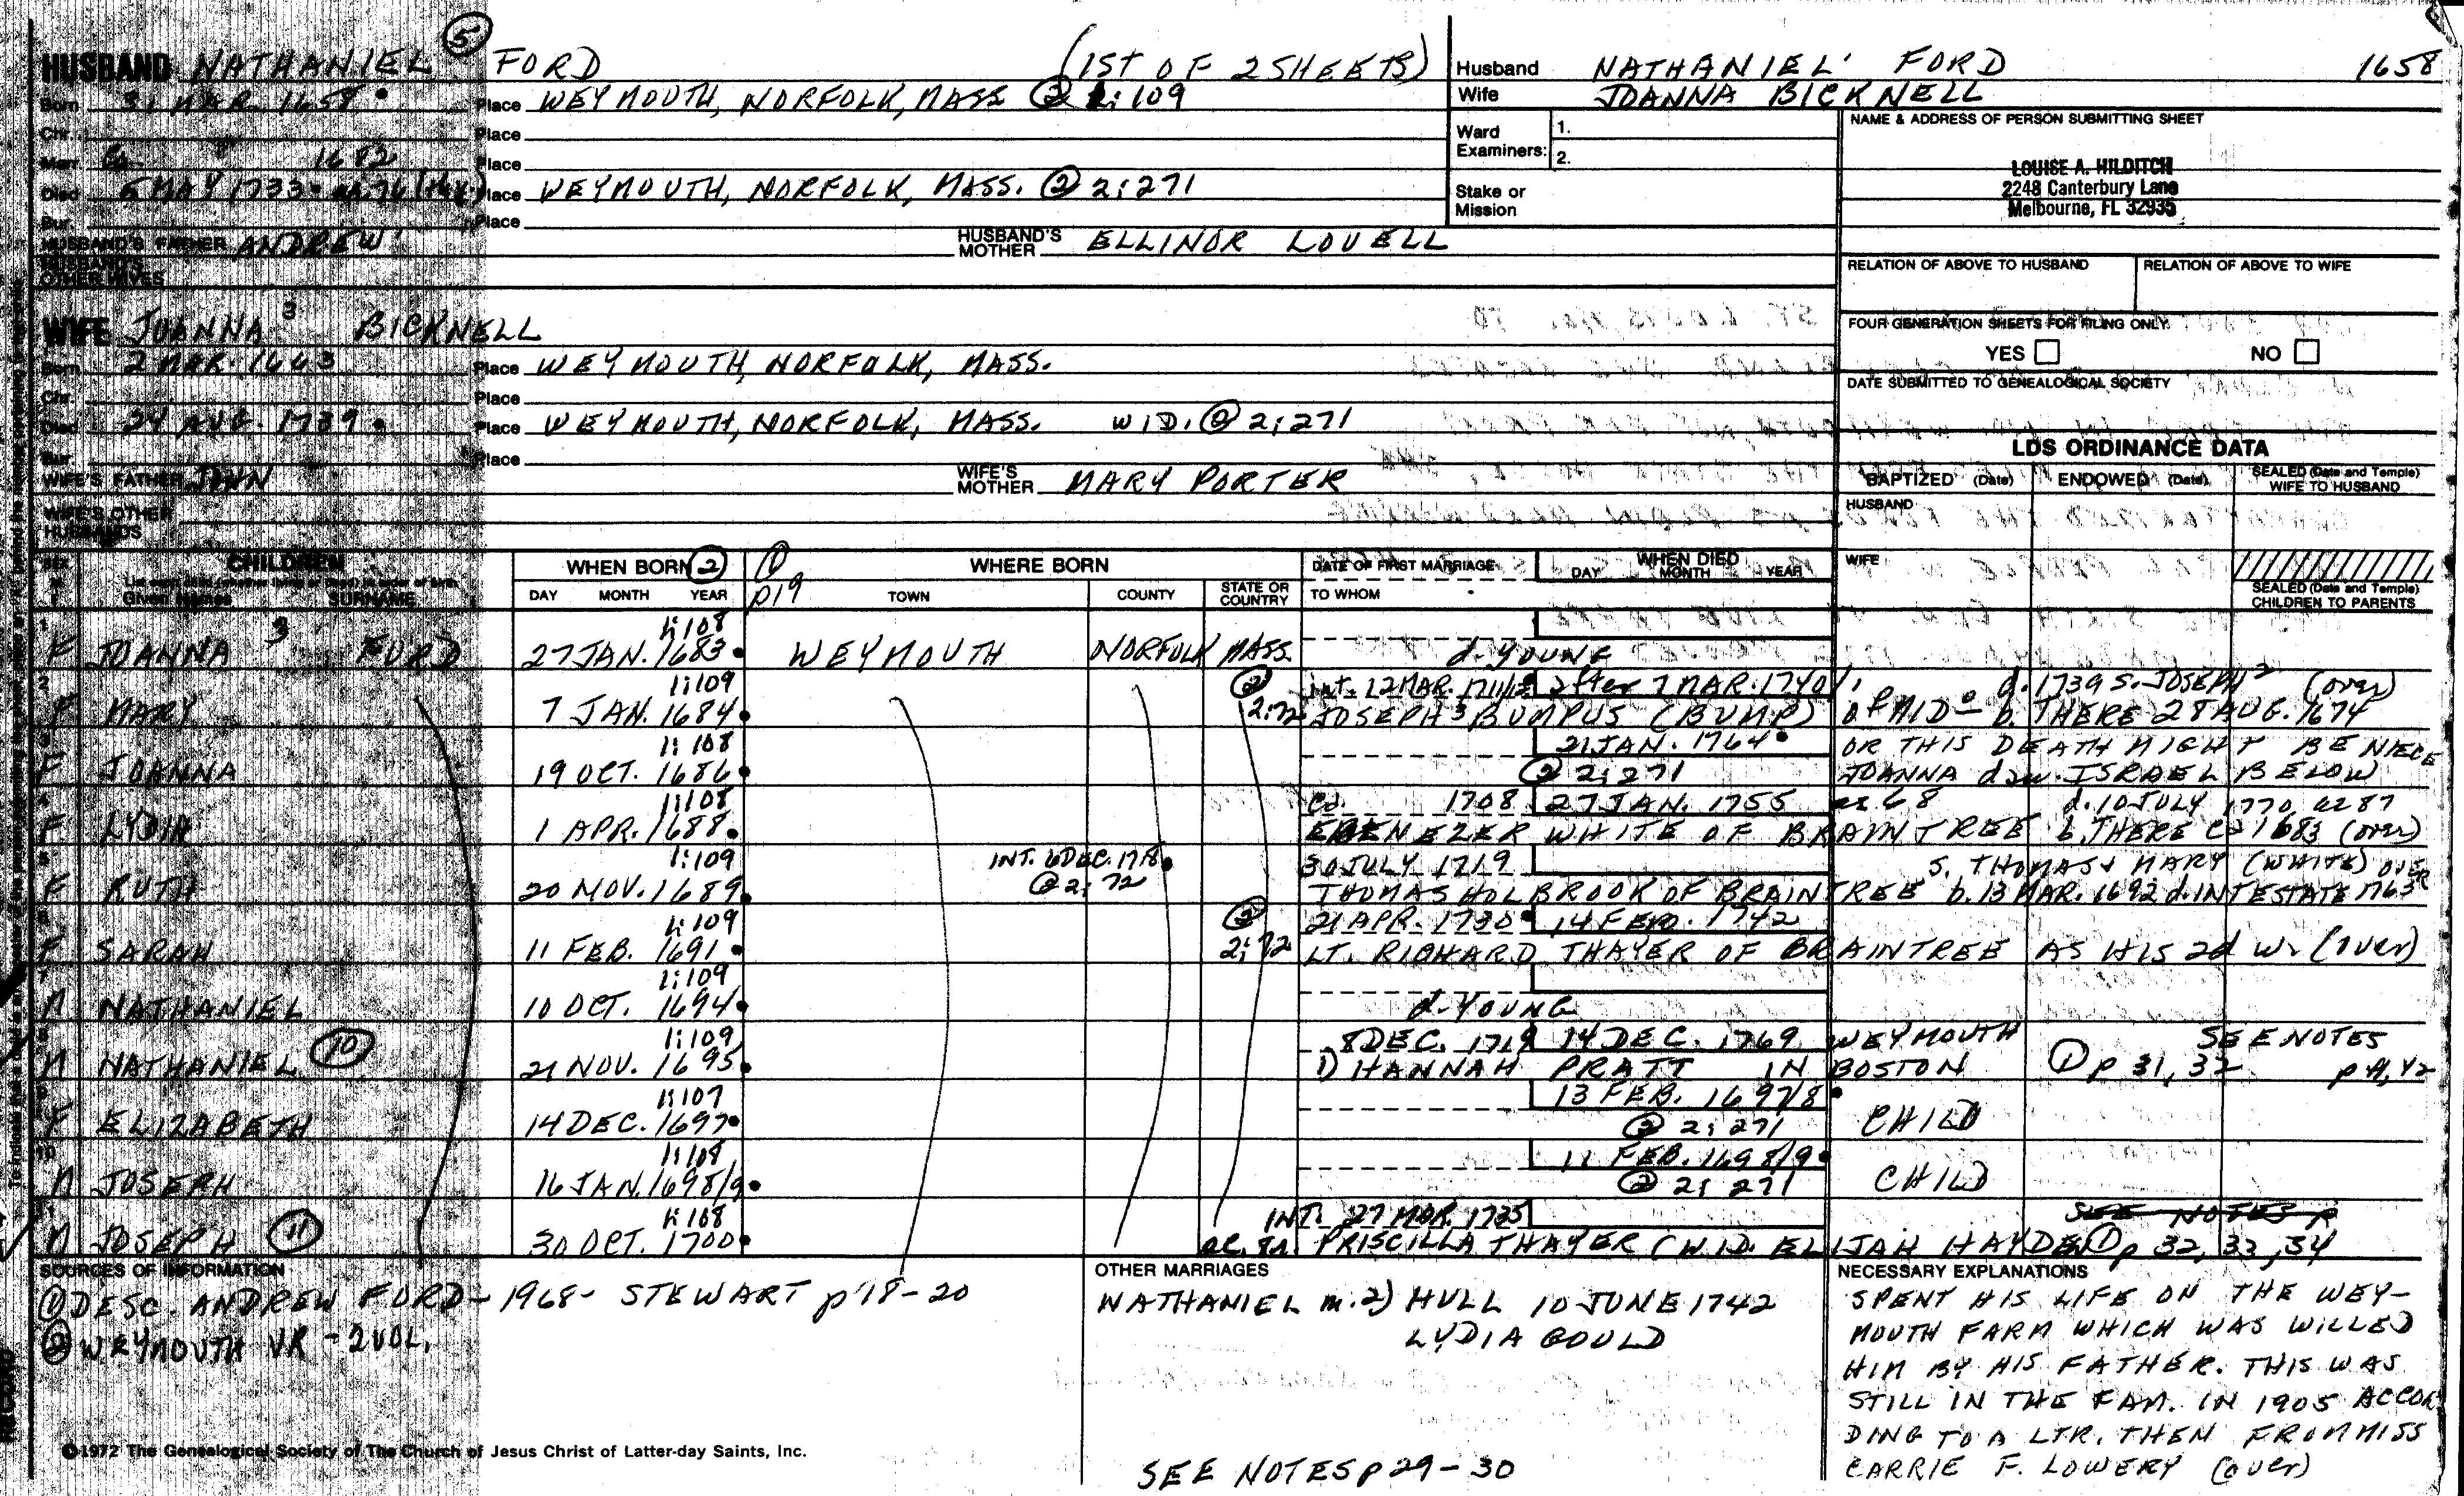 HUSBAND NATHANIEL ⑤ FORD (1ST OF 2 SHEETS)
Born 31 MAR. 1658 • Place WEYMOUTH, NORFOLK, MASS ② 1:109
Chr. Place
Marr. Ca. 1682 Place
Died 5 MAY 1733 • Place WEYMOUTH, NORFOLK, MASS. ② 2:271
Bur. Place
HUSBAND'S FATHER ANDREW HUSBAND'S MOTHER ELLINOR LOVELL
HUSBAND'S OTHER WIVES
WIFE JOANNA 3 BICKNELL
Born 2 MAR. 1663 Place WEYMOUTH, NORFOLK, MASS.
Chr. Place
Died 24 AUG. 1739 • Place WEYMOUTH, NORFOLK, MASS. WID. ② 2:271
Bur. Place
WIFE'S FATHER JOHN WIFE'S MOTHER MARY PORTER
WIFE'S OTHER HUSBANDS
Husband NATHANIEL' FORD 1658
Wife JOANNA BICKNELL
Ward Examiners: 1.
2.
Stake or Mission
NAME & ADDRESS OF PERSON SUBMITTING SHEET
LOUISE A. HILDITCH
2248 Canterbury Lane
Melbourne, FL 32935
RELATION OF ABOVE TO HUSBAND RELATION OF ABOVE TO WIFE
FOUR GENERATION SHEETS FOR FILING ONLY
YES NO
DATE SUBMITTED TO GENEALOGICAL SOCIETY
LDS ORDINANCE DATA
BAPTIZED (Date) ENDOWED (Date) SEALED (Date and Temple) WIFE TO HUSBAND
HUSBAND
WIFE
SEALED (Date and Temple) CHILDREN TO PARENTS
SEX M F CHILDREN WHEN BORN ② ① p19 WHERE BORN DATE OF FIRST MARRIAGE WHEN DIED
Given Names SURNAME DAY MONTH YEAR TOWN COUNTY STATE OR COUNTRY TO WHOM DAY MONTH YEAR
1 1:108
F JOANNA 3 FORD 27 JAN. 1683 • WEYMOUTH NORFOLK MASS. d. YOUNG
2 1:109 ② INT. 12 MAR. 1711/12 • after 7 MAR. 1740/1 d. 1739 S. JOSEPH 2 (over)
F MARY 7 JAN. 1684 • 2:72 JOSEPH 3 BUMPUS (BUMP) OF MID b. THERE 28 AUG. 1674
3 1:108 21 JAN. 1764 • OR THIS DEATH MIGHT BE NIECE
F JOANNA 19 OCT. 1686 • ② 2:271 JOANNA daw. ISRAEL BELOW
4 1:108 Ca. 1708 27 JAN. 1755 ae 68 d. 10 JULY 1770 ae 87
F LYDIA 1 APR. 1688 • EBENEZER WHITE OF BRAINTREE b. THERE Ca 1683 (over)
5 1:109 INT. 6 DEC. 1718 • 30 JULY 1719 S. THOMAS & MARY (WHITE) OVER
F RUTH 20 NOV. 1689 • ② 2:72 THOMAS HOLBROOK OF BRAINTREE b. 13 MAR. 1692 d. INTESTATE 1763
6 1:109 ② 21 APR. 1730 • 14 FEB. 1742
F SARAH 11 FEB. 1691 • 2:72 LT. RICHARD THAYER OF BRAINTREE AS HIS 2d w. (over)
7 1:109
M NATHANIEL 10 OCT. 1694 • d. YOUNG
8 1:109 8 DEC. 1719 14 DEC. 1769 WEYMOUTH SEE NOTES
M NATHANIEL ⑩ 21 NOV. 1695 • 1) HANNAH PRATT IN BOSTON ① p 31, 32
9 1:107 13 FEB. 1697/8 •
F ELIZABETH 14 DEC. 1697 • ② 2:271 CHILD
10 1:108 11 FEB. 1698/9 •
M JOSEPH 16 JAN. 1698/9 • ② 2:271 CHILD
11 1:108 INT. 27 MAR. 1735 SEE NOTES p
M JOSEPH ⑪ 30 OCT. 1700 • PRISCILLA THAYER (WID. ELIJAH HAYDEN) ① p 32, 33, 34
SOURCES OF INFORMATION
① DESC. ANDREW FORD - 1968 - STEWART p 18-20
② WEYMOUTH VR - 2 VOL.
OTHER MARRIAGES
NATHANIEL m. 2) HULL 10 JUNE 1742
LYDIA GOULD
SEE NOTES p 29-30
NECESSARY EXPLANATIONS
SPENT HIS LIFE ON THE WEY-
MOUTH FARM WHICH WAS WILLED
HIM BY HIS FATHER. THIS WAS
STILL IN THE FAM. IN 1905 ACCOR
DING TO A LTR. THEN FROM MISS
CARRIE F. LOWERY (over)
©1972 The Genealogical Society of The Church of Jesus Christ of Latter-day Saints, Inc.